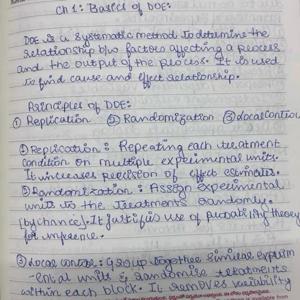 Ch 1: Basics of DOE:
DOE is a systematic method to determine the
relationship b/w factors affecting a process
and the output of the process. It is used
to find cause and effect relationship.
Principles of DOE:
① Replication ② Randomization ③ Local Control
① Replication: Repeating each treatment
condition on multiple experimental units.
It increases precision of effect estimates.
② Randomization: Assign experimental
units to the treatments randomly.
(by chance). It justifies use of probability theory
for inference.
③ Local control: Group together similar experim
-ental units & randomise treatments
within each block. It removes variability